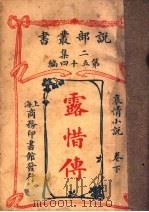 說部叢書
二集
第五十四編
哀情小說
卷下
露惜傳
上海商務印書館發行